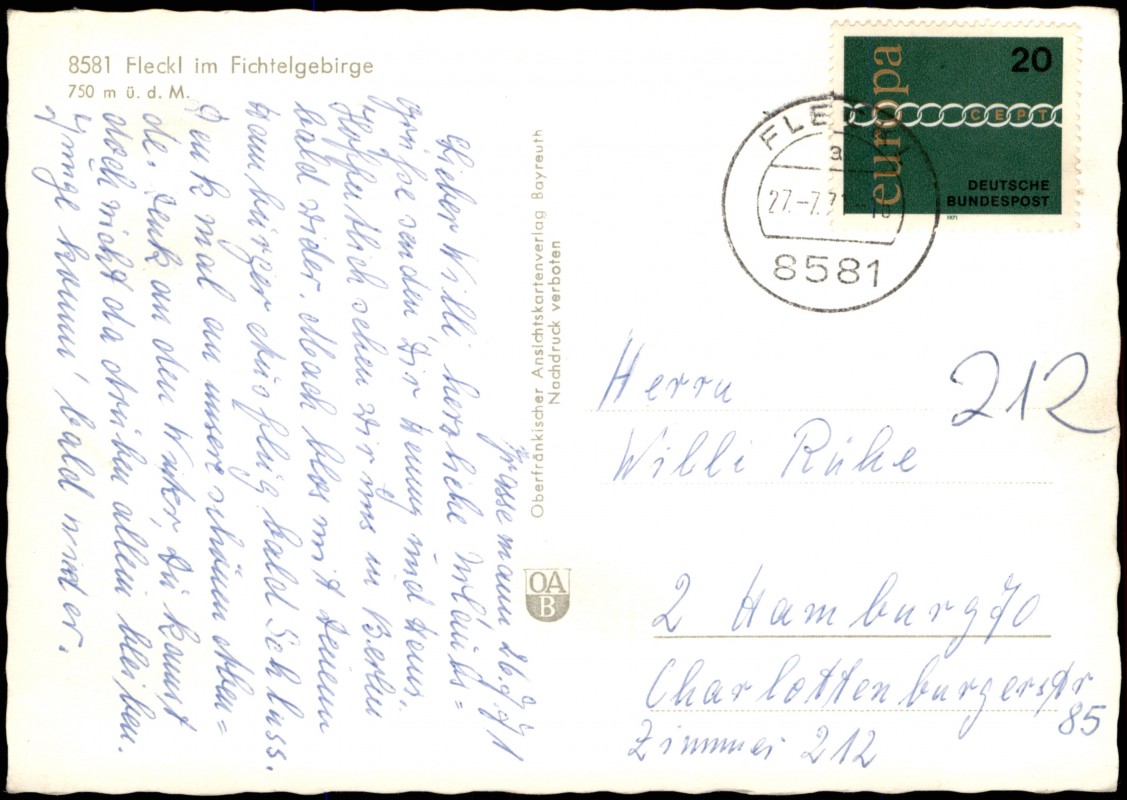 8581 Fleckl im Fichtelgebirge
750 m ü. d. M.
Grassemann 26.7.71
Lieber Willi herzliche Urlaubs=
grüsse senden Dir Henny und
Hoffentlich sehen wir uns in Berlin
bald wider. Mach blos mit deinem
Hamburger Ausflug bald Schluss.
Denk mal an unsere schönen Aben=
de, denk an den Winter, Du kannst
doch nicht da drüben allein bleiben.
Junge komm' bald wieder.
Oberfränkischer Ansichtskartenverlag Bayreuth
Nachdruck verboten
OA
B
europa
20
CEPT
DEUTSCHE
BUNDESPOST
1971
a
27.-7.71
8581
Herrn
212
Willi Rühe
2 Hamburg 70
Charlottenburgerstr
85
Zimmer 212